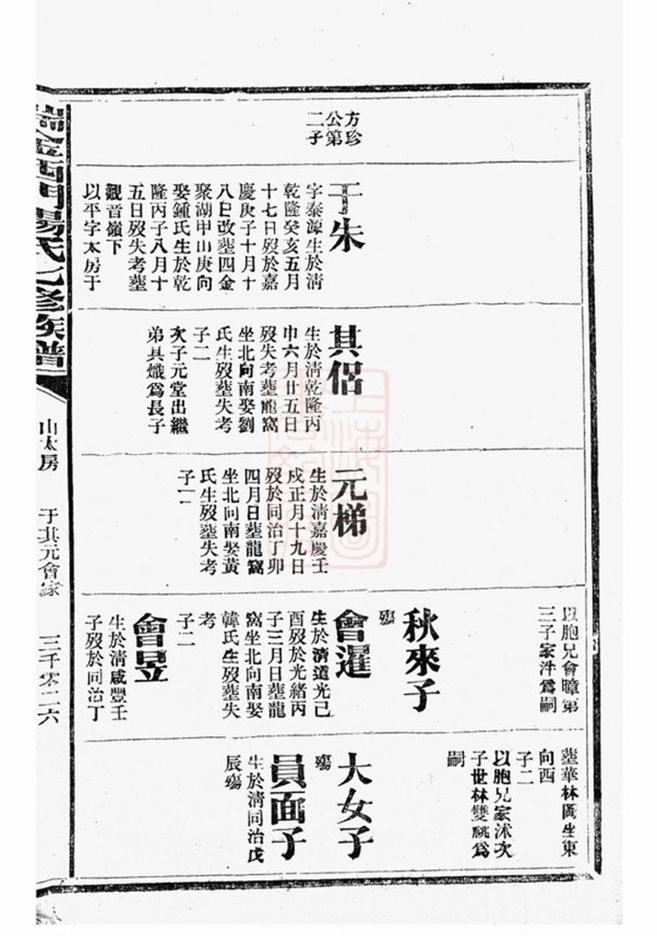 方珍
公第
二子
于朱
字泰源生於清
乾隆癸亥五月
十七日歿於嘉
慶庚子十月十
八日改塟四金
聚湖甲山庚向
娶鍾氏生於乾
隆丙子八月十
五日歿失考塟
觀音嶺下
以平字太房于
其侶
生於清乾隆丙
申六月廿五日
歿失考塟龍窩
坐北向南娶劉
氏生歿塟失考
子二
次子元堂出繼
弟其熾為長子
元梯
生於清嘉慶壬
戌正月十九日
歿於同治丁卯
四月日塟龍窩
坐北向南娶黃
氏生歿塟失考
子二
以胞兄會暲第
三子家泮為嗣
秋來子
殤
會暹
生於清道光己
酉歿於光緒丙
子三月日塟龍
窩坐北向南娶
韓氏生歿塟失
考
子二
會昱
生於清咸豐壬
子歿於同治丁
塟華林崗坐東
向西
子二
以胞兄家沭次
子世林雙祧為
嗣
大女子
殤
員面子
生於清同治戊
辰殤
瑞金西門楊氏七修族譜
山太房
于其元會家
三千零二六